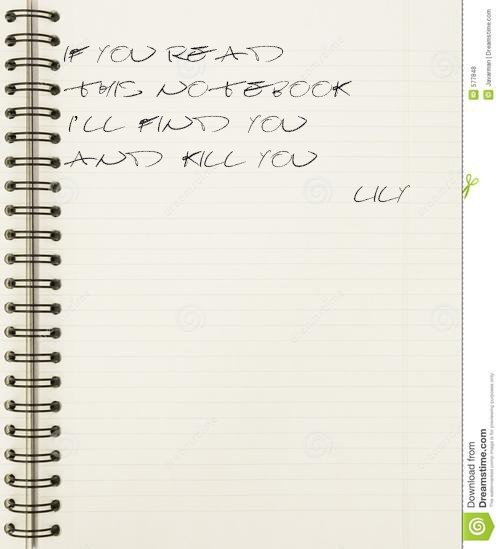 IF YOU READ
THIS NOTEBOOK
I'LL FIND YOU
AND KILL YOU
LILY
577848
© Javarman | Dreamstime.com
Download from
Dreamstime.com
This watermarked comp image is for previewing purposes only.